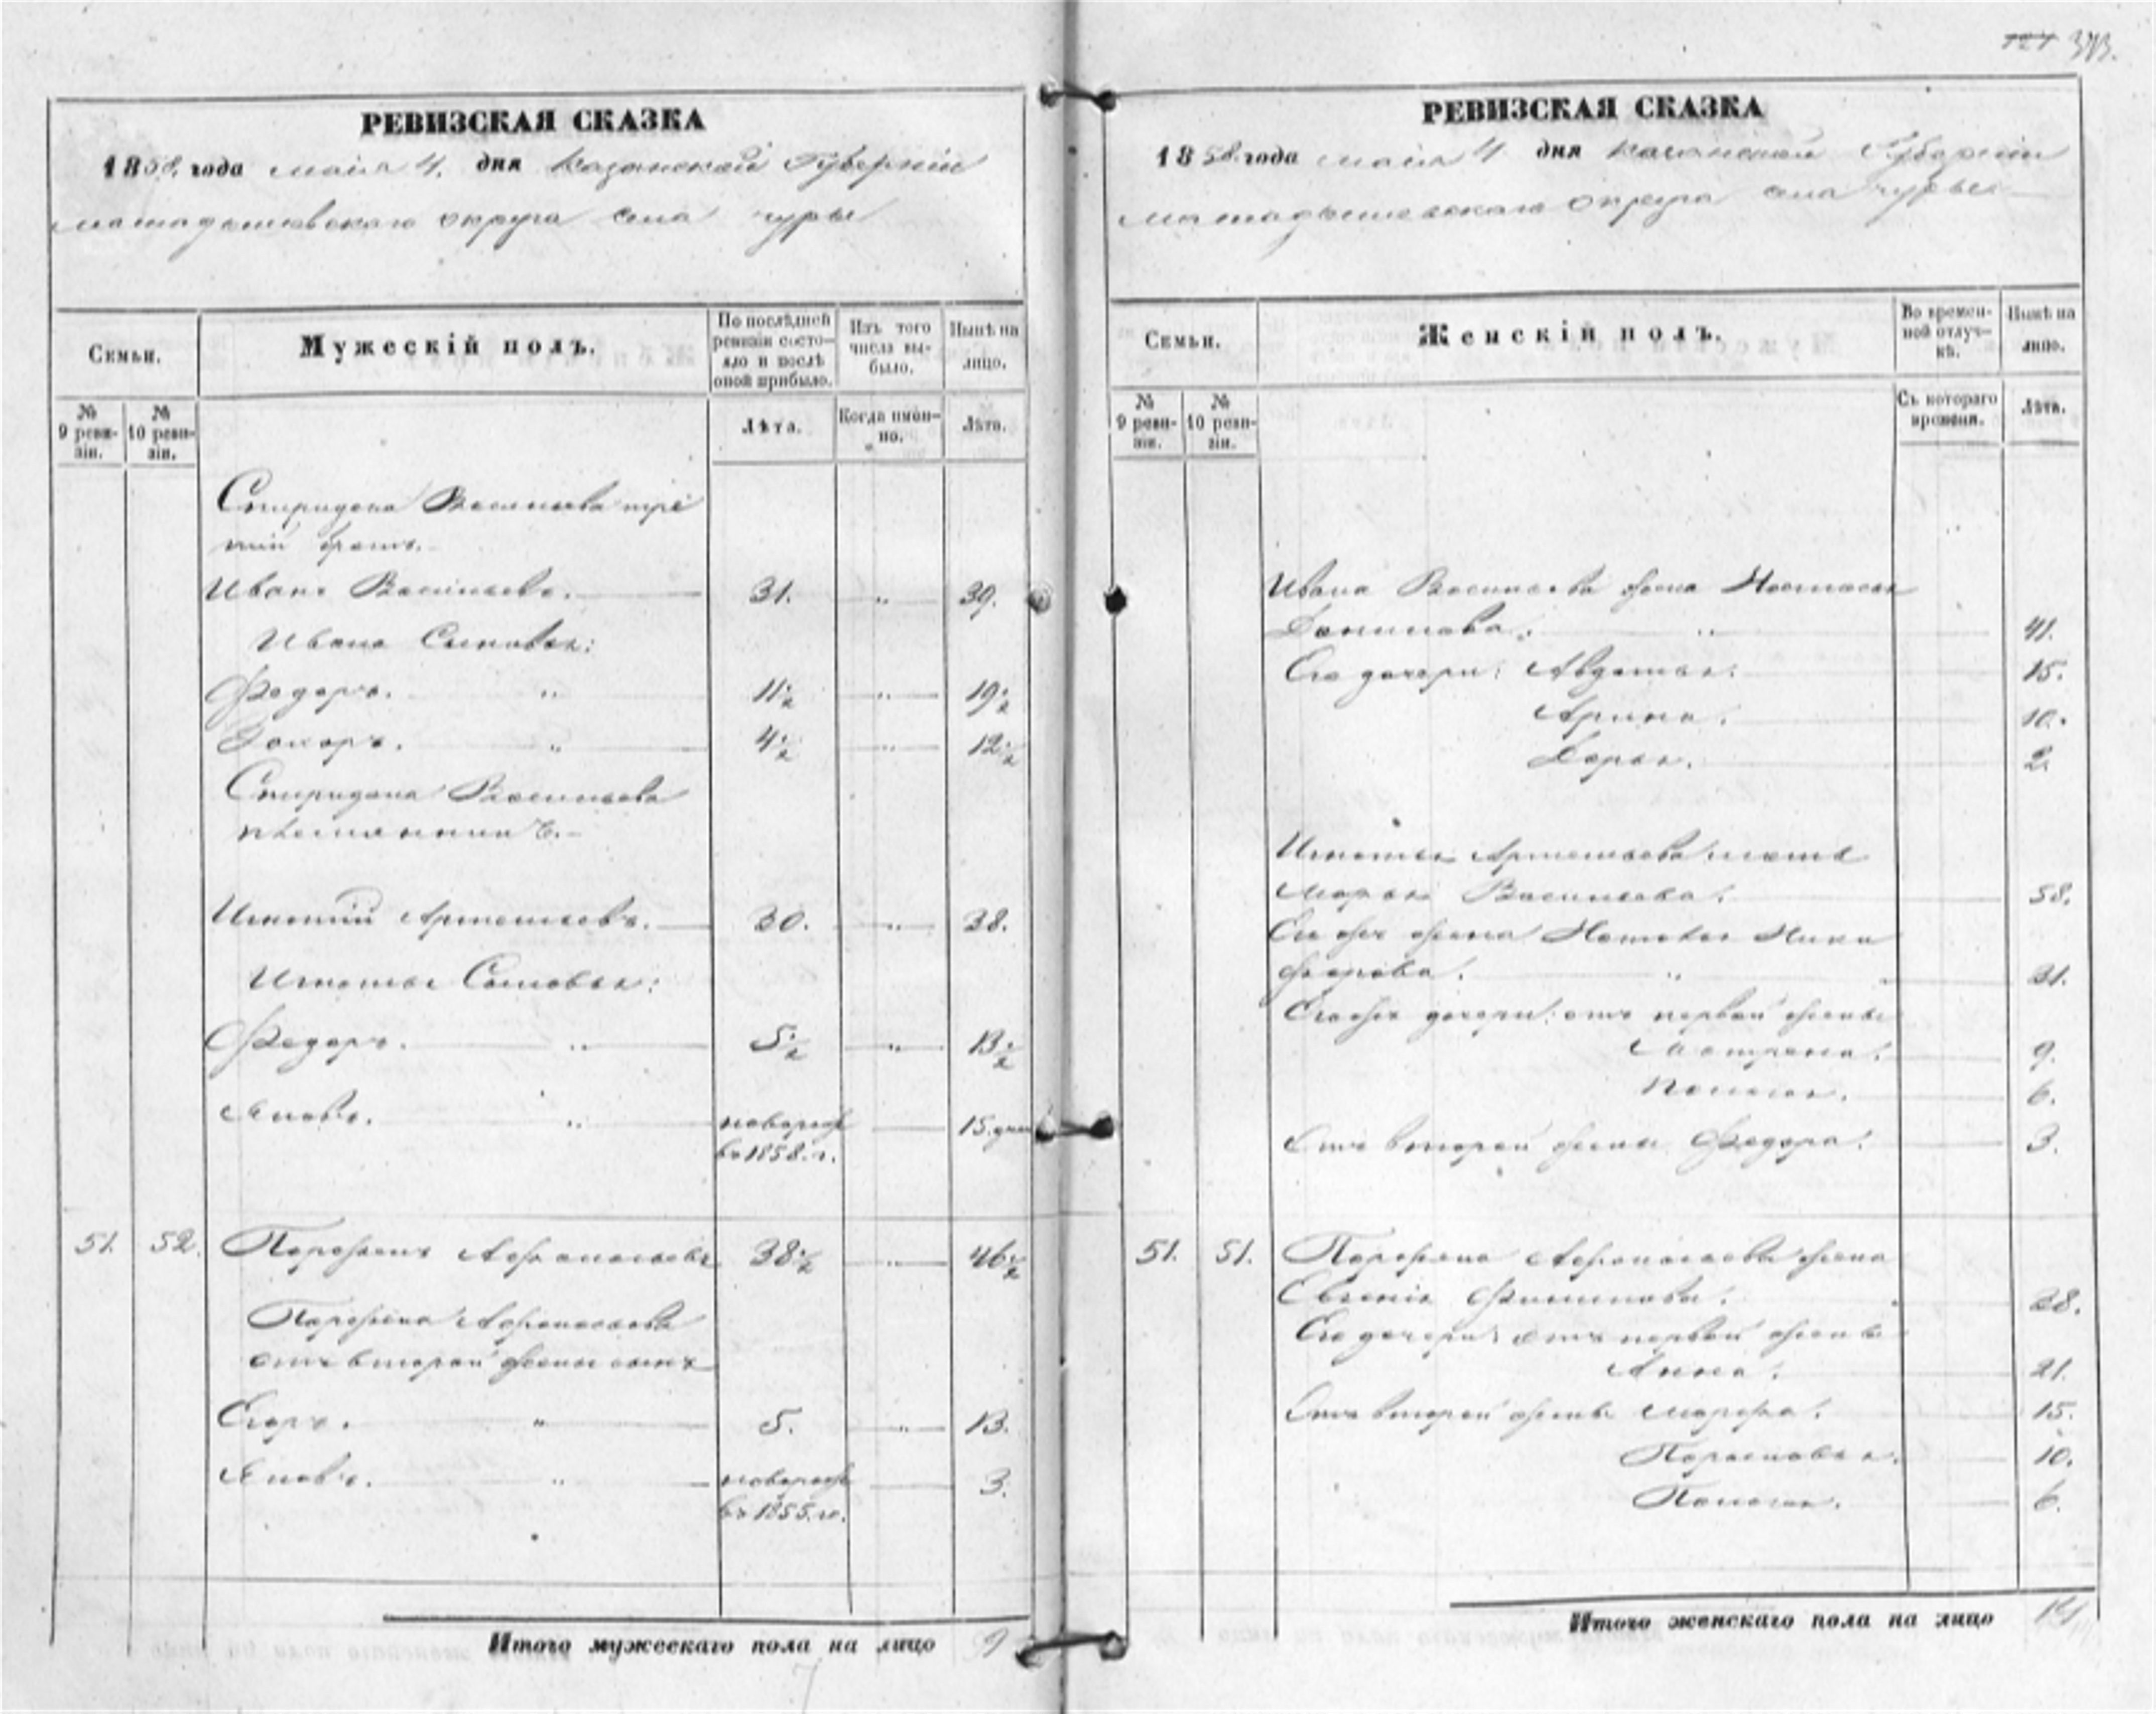 121 373.
РЕВИЗСКАЯ СКАЗКА
1858. года маия 4. дня Казанской Губернии
мамадышевскаго округа села чуры
Семьи.
Мужескій полъ.
По послѣдней ревизіи состояло и послѣ оной прибыло.
Изъ того числа выбыло.
Нынѣ на лицо.
№ 9 ревизіи.
№ 10 ревизіи.
Лѣта.
Когда именно.
Лѣта.
Спиридона Васильева тре
тий братъ.
Иванъ Васильевъ. 31. „ 39.
Ивана Сыновья:
Федоръ. „ 11½ „ 19½
Захаръ. „ 4½ „ 12½
Спиридона Васильева
племянникъ.
Игнатий Артемьевъ. 30. „ 38.
Игнатья Сыновья:
Федоръ. „ 5½ „ 13½
Яковъ. „ новорож 15. дне
въ 1858. г.
51. 52. Парфенъ Афонасьевъ 38½ „ 46½
Парфена Афонасьева
отъ второй жены сынъ
Егоръ. „ 5. „ 13.
Яковъ. „ новорож 3.
въ 1855. го.
Итого мужескаго пола на лицо 9
РЕВИЗСКАЯ СКАЗКА
1858. года маия 4 дня Казанской Губернии
мамадышевскаго округа села чуры
Семьи.
Женскій полъ.
Во временной отлучкѣ.
Нынѣ на лицо.
№ 9 ревизіи.
№ 10 ревизіи.
Съ котораго времени.
Лѣта.
Ивана Васильева жена Настасья
Данилова. „ 41.
Его дочери: Авдотья. 15.
Арина. 10.
Дарья. 2.
Игнатья Артемьева мать
Марья Васильева. 58.
Его же жена Наталья Ники
форова. „ 31.
Его же дочери: отъ первой жены
Матрена. 9.
Пелагея. 6.
Отъ второй жены Федора. 3.
51. 51. Парфена Афонасьева жена
Евгения Филипова. 38.
Его дочери: отъ первой жены
Анна. 21.
Отъ второй жены Марфа. 15.
Парасковья. 10.
Пелагея. 6.
Итого женскаго пола на лицо